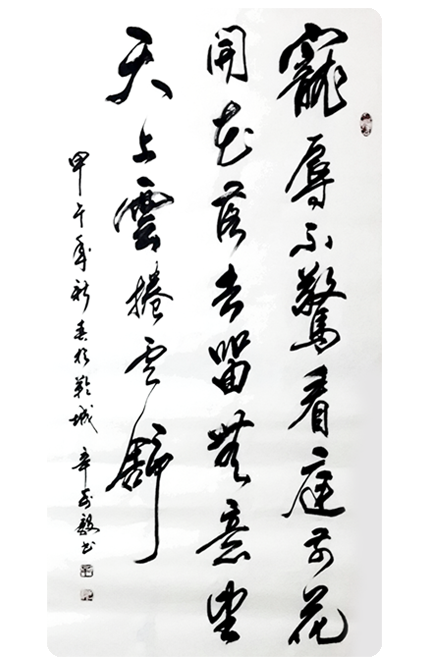 寵辱不驚看庭前花
開花落去留無意望
天上雲捲云舒
甲午年新春於乾城